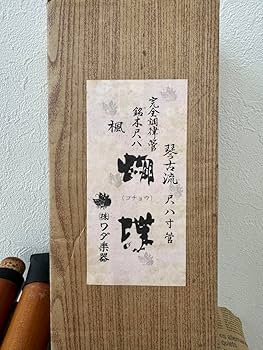 琴古流 尺八寸管
胡蝶
(コチョウ)
完全調律管
銘木尺八
楓
㈱ワダ楽器